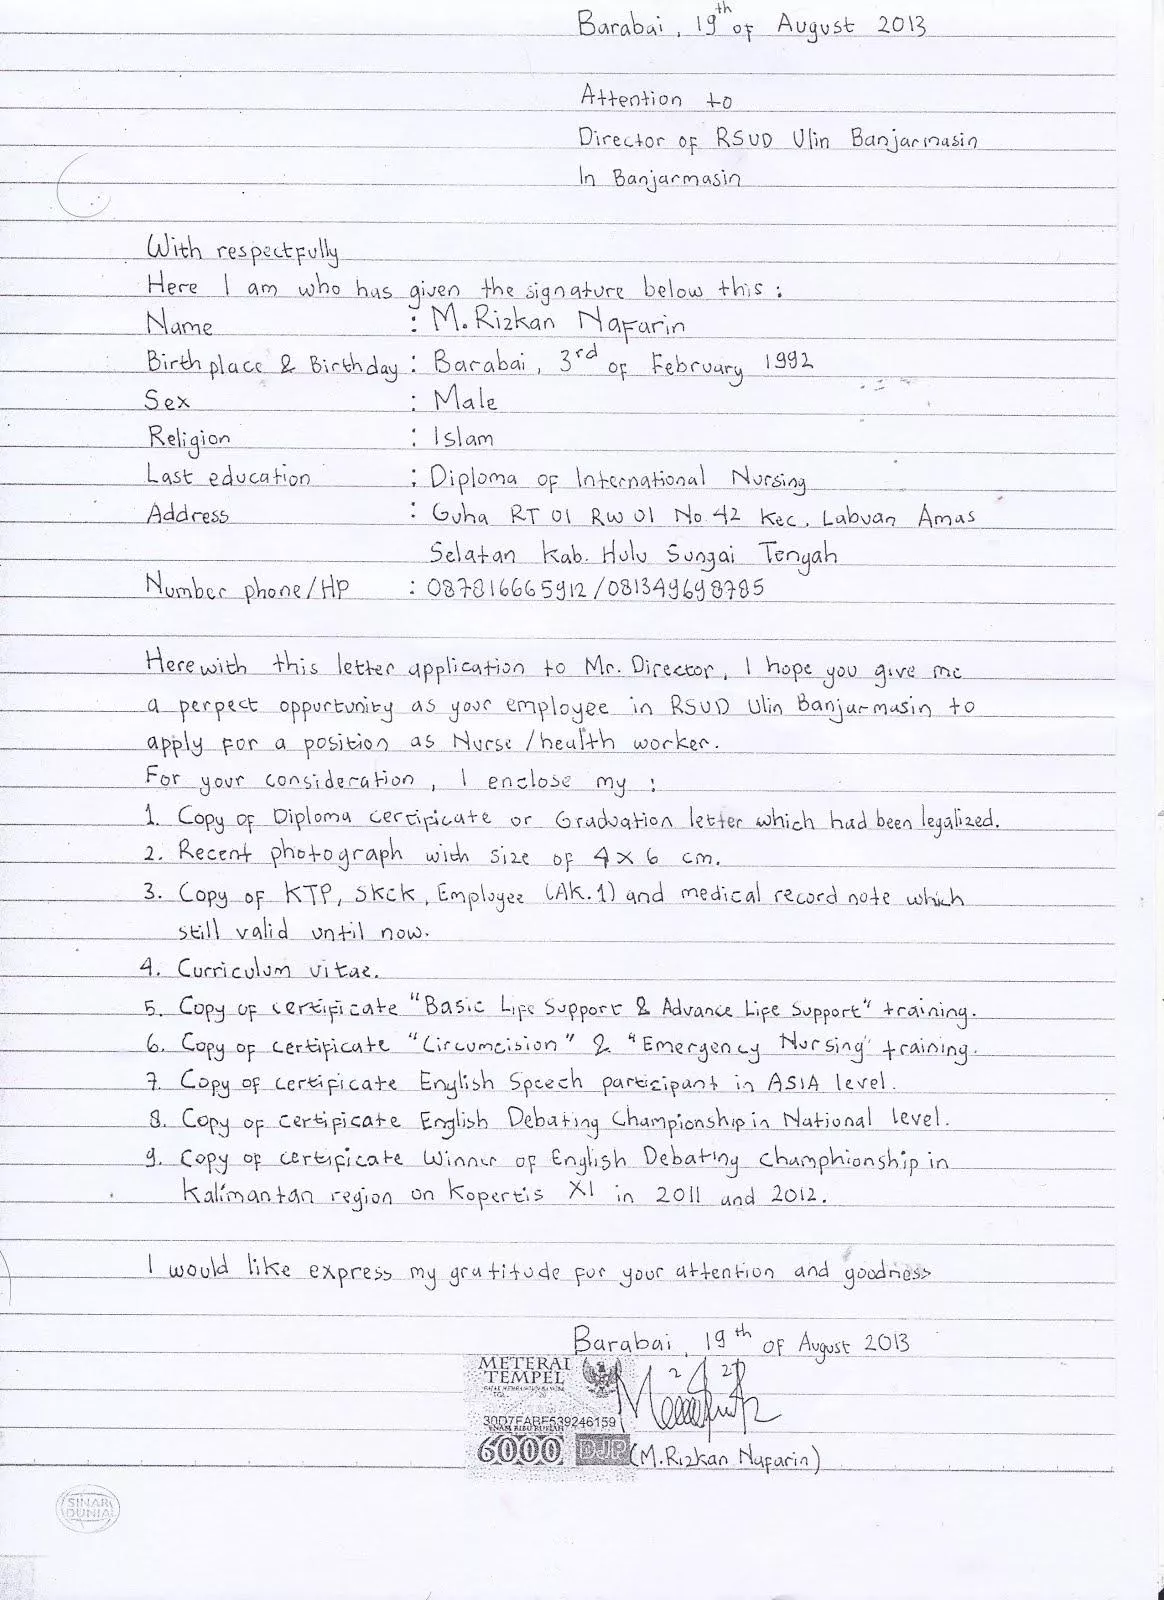 Barabai, 19th of August 2013
Attention to
Director of RSUD Ulin Banjarmasin
In Banjarmasin
With respectfully
Here I am who has given the signature below this :
Name : M. Rizkan Nafarin
Birth place & Birthday : Barabai, 3rd of February 1992
Sex : Male
Religion : Islam
Last education : Diploma of International Nursing
Address : Guha RT 01 RW 01 No. 42 Kec. Labuan Amas
Selatan Kab. Hulu Sungai Tengah
Number phone/HP : 087816665912 / 081349698785
Here with this letter application to Mr. Director, I hope you give me
a perpect oppurtunity as your employee in RSUD Ulin Banjarmasin to
apply for a position as Nurse / health worker.
For your consideration, I enclose my :
1. Copy of Diploma certificate or Graduation letter which had been legalized.
2. Recent photograph with size of 4 x 6 cm.
3. Copy of KTP, SKCK, Employee (AK.1) and medical record note which
still valid until now.
4. Curriculum vitae.
5. Copy of certificate "Basic Life Support & Advance Life Support" training.
6. Copy of certificate "Circumcision" & "Emergency Nursing" training.
7. Copy of certificate English Speech participant in ASIA level.
8. Copy of certificate English Debating Championship in National level.
9. Copy of certificate Winner of English Debating Champhionship in
Kalimantan region on Kopertis XI in 2011 and 2012.
I would like express my gratitude for your attention and goodness
Barabai, 19th of August 2013
METERAI
TEMPEL
30D7FABF539246159
ENAM RIBU RUPIAH
6000 DJP
(M. Rizkan Nafarin)
SINAR
DUNIA